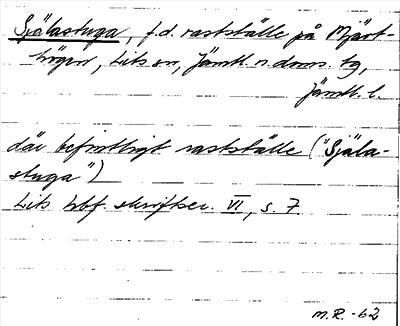 Själastuga, f.d. rastställe på Mjärt-
högen, Lits sn, Jämtl. n. doms. tg,
Jämtl. l.
där befintligt rastställe ("Själa-
stuga")
Lits hbf. skrifter. VI, s. 7
M.R. -62